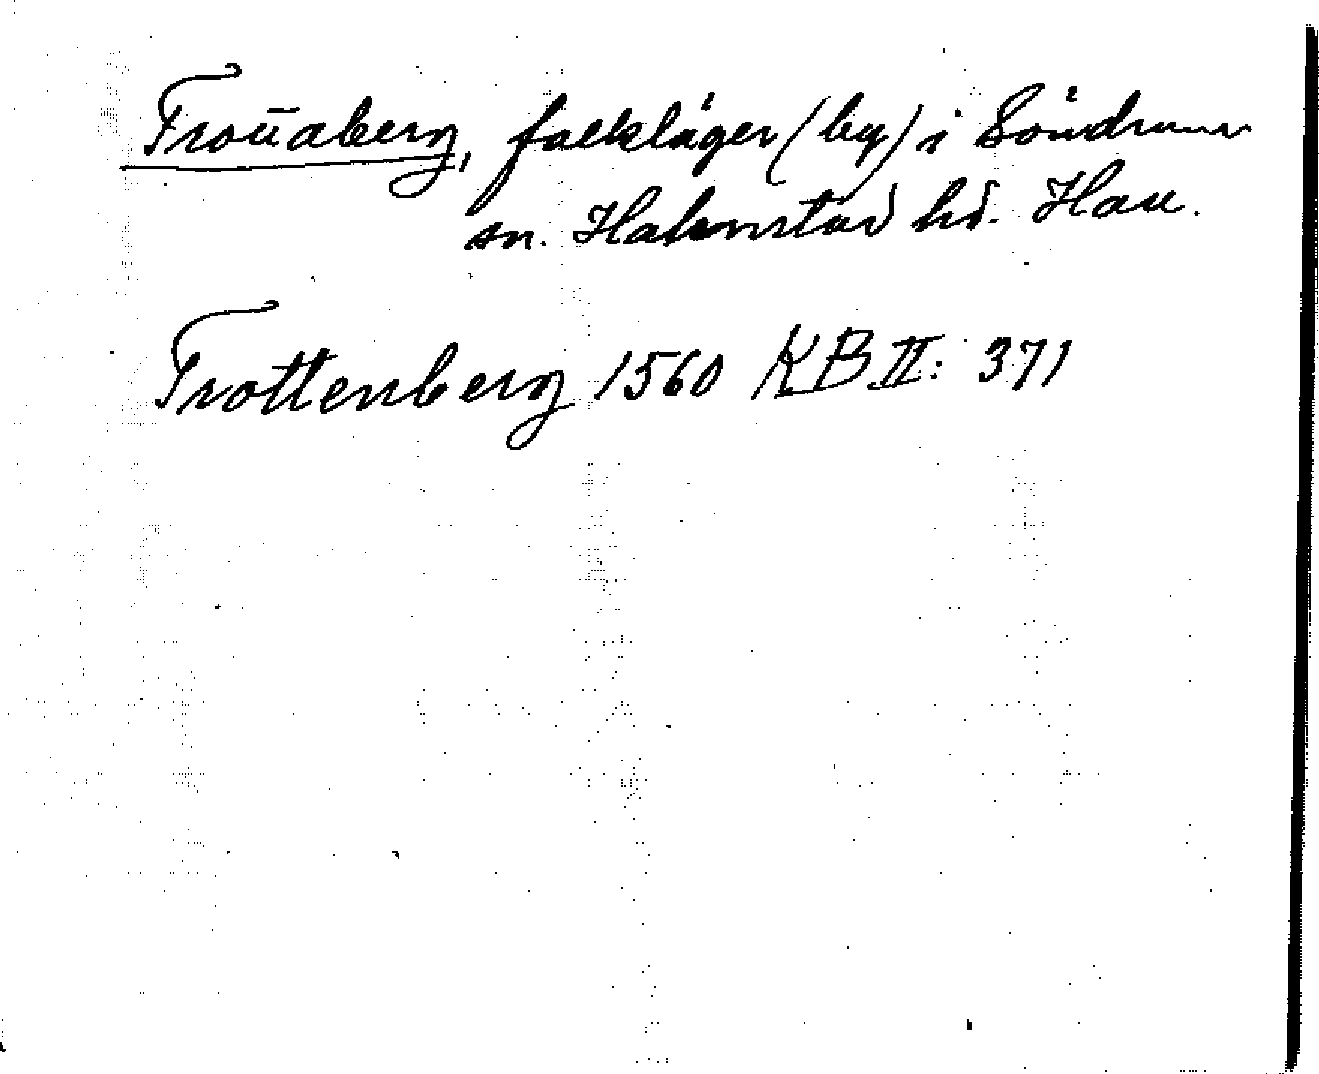 Trottaberg, folkläger (by) i Söndrums
sn. Halmstad hd. Hall.
Trottenberg 1560 KB II: 371